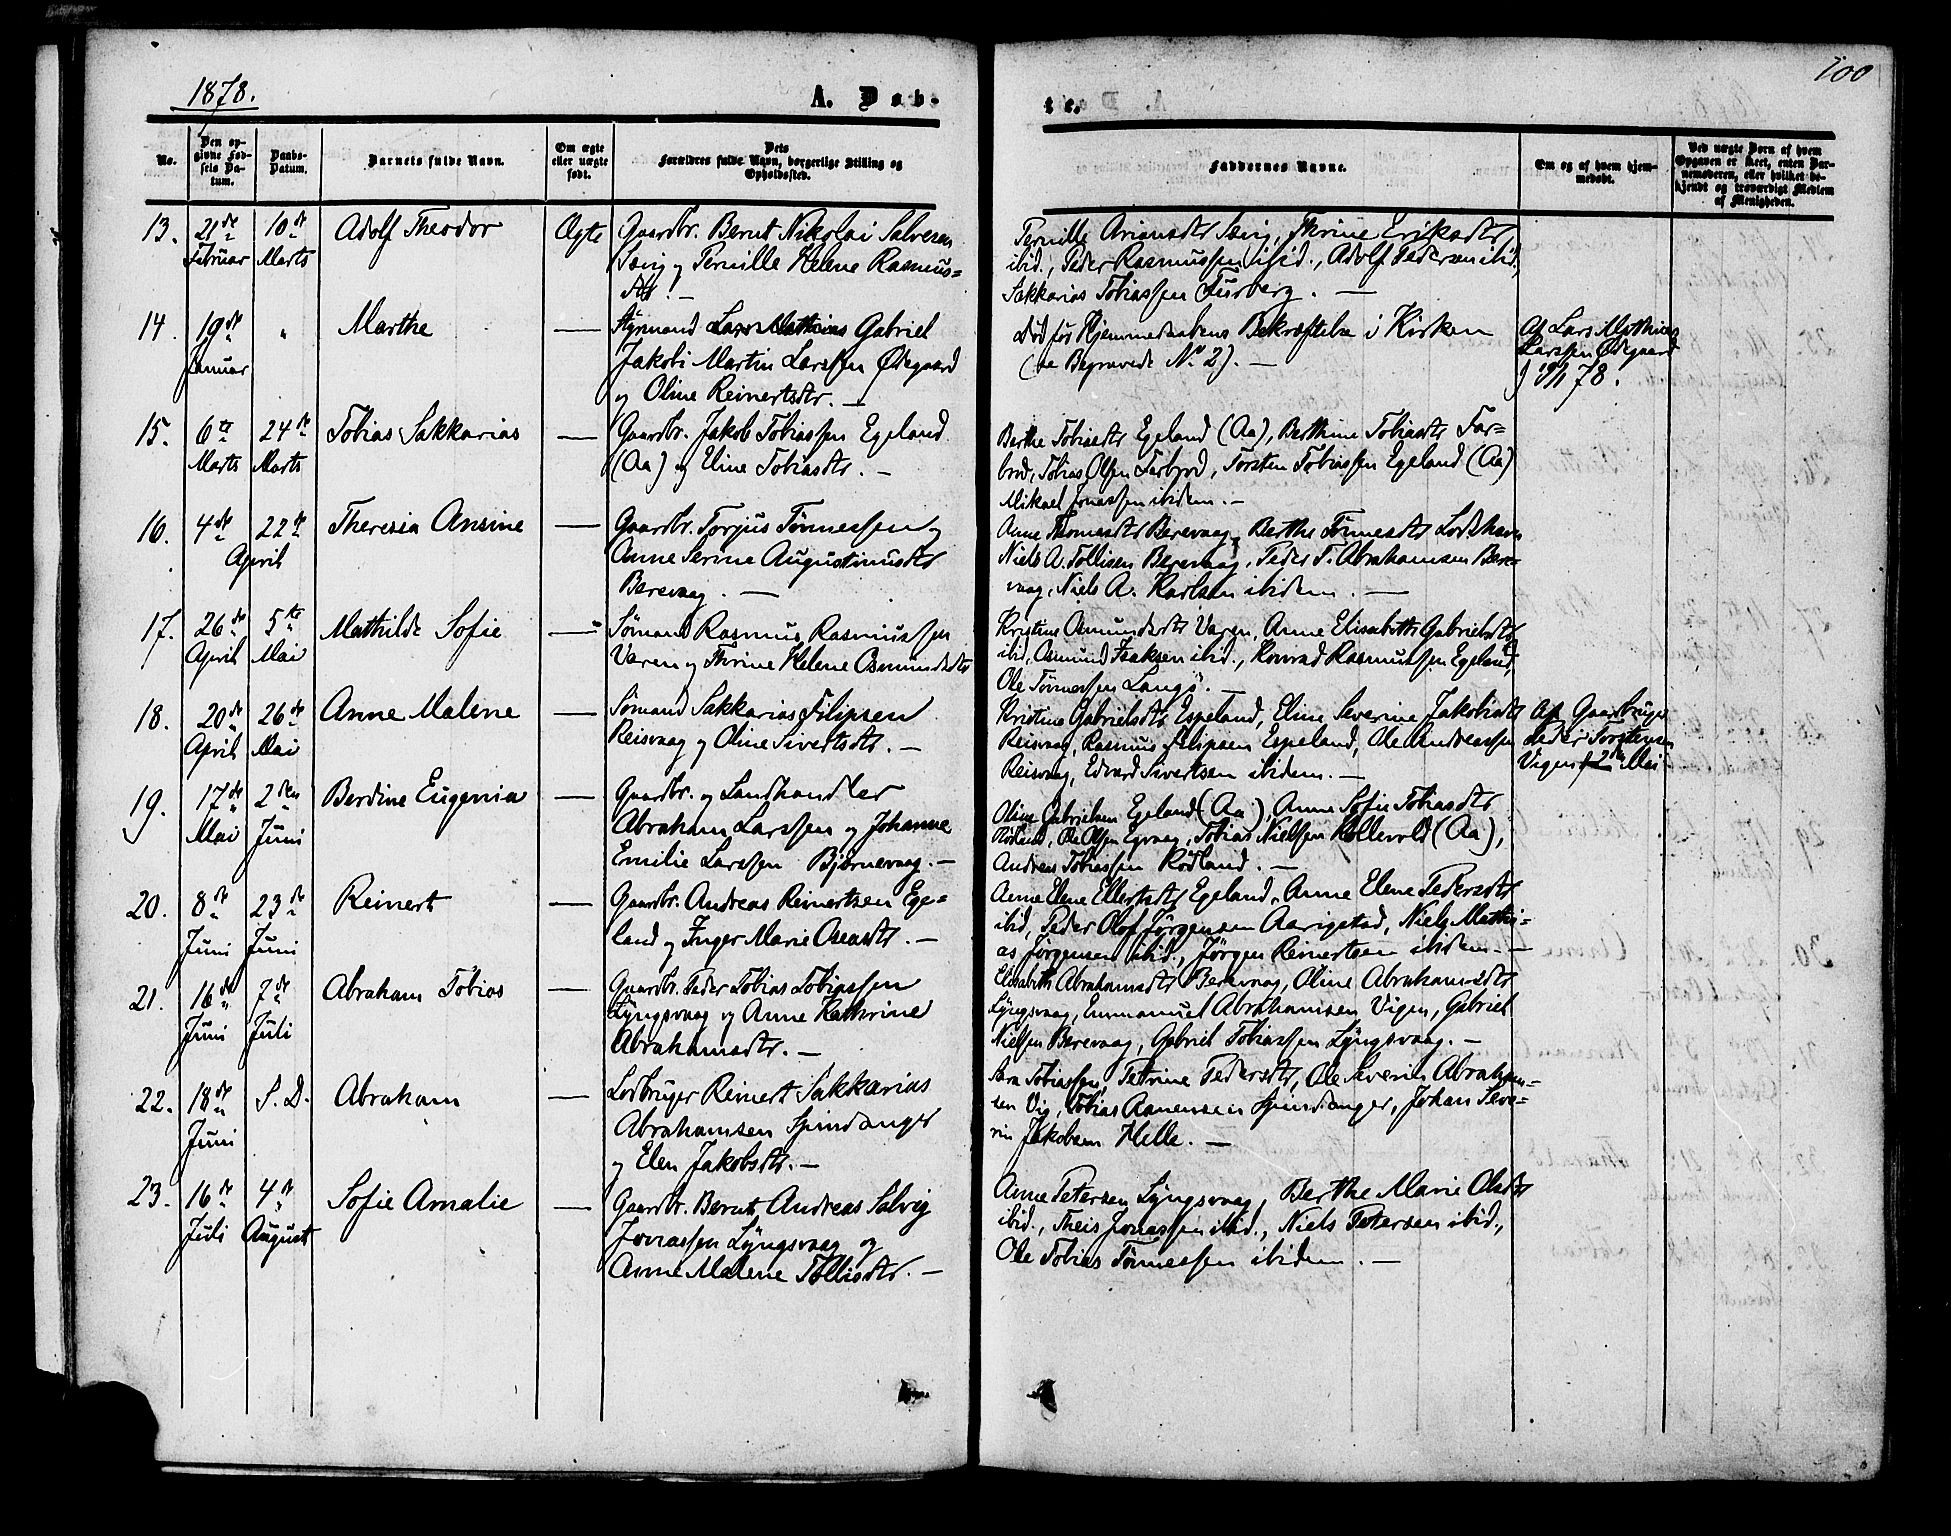 1878.
A. Døb-
te.
100
No.
Den opgivne Fødsels Datum.
Daabs-Datum.
Barnets fulde Navn.
Om ægte eller uægte født.
Dets Forældres fulde Navn, borgerlige Stilling og Opholdssted.
Faddernes Navne.
Om og af hvem hjemmedøbt.
Ved uægte Børn af hvem Opgaven er skeet, enten Barnemoderen, eller hvilket bekjendt og troværdigt Medlem af Menigheden.
13. 21de Februar 10de Marts Adolf Theodor Ægte Gaardbr. Bernt Nikolai Salvesen
og Pernille Helene Rasmus-
dtr. —
Pernille Thrine Eriksdtr
ibid., Peder Rasmussen ibid., Adolf Pedersen ibid.,
Sakkarias Tobiassen Furberg. —
14. 19de Januar " Marthe — Styrmand Gabriel
Jakobi Martin Larssen Ødegaard
og Oline Reinertsdtr. —
Død før Hjemmedaabens Bekræftelse i Kirken
(se Begravede No 2). —
Af Lars Mathias
Larssen Ødegaard
78.
15. 6te Marts 24de Marts Tobias Sakkarias — Gaardbr. Jakob Tobiassen Egeland
(Aa) og Eline Tobiasdtr. —
Berthe Tobiasdtr Egeland (Aa), Berthine Tobiasdtr Far-
brod, Tobias Olsen Farbrod, Torsten Tobiassen Egeland (Aa)
Mikael Jonassen ibidem. —
16. 4de 22de April Theresia Ansine — Gaardbr. Torjus Tønnessen og
Anne Serine Augustinusdtr
Berevaag. —
Anne Thomasdtr Berevaag, Berthe Tønnesdtr Lodshavn
Niels A. Tollisen Berevaag, Peder T. Abrahamsen Bere-
vaag, Niels A. Karlsen ibidem. —
17. 26de April 5te Mai Mathilde Sofie — Sømand Rasmus Rasmussen
Varen og Thrine Helene Osmundsdtr
Kristine Osmundsdtr Varen, Anne Elisabeth Gabrielsdtr
ibid., Osmund Isaksen ibid., Konrad Rasmussen Egeland,
Ole Tønnessen Langø. —
18. 20de April 26de Mai Anne Malene — Sømand Sakkarias Filipsen
Reisvaag og Oline Sivertsdtr. —
Kristine Gabrielsdtr Espeland, Eline Severine Jakobsdtr
Reisvaag, Rasmus Filipsen Espeland, Ole Andreassen
Reisvaag, Edvard Sivertsen ibidem. —
Af Gaardbruger
Peder Torstensen
Vigen 2den Mai
19. 17de Mai 2den Juni Berdine Eugenia — Gaardbr. og Landhandler
Abraham Larssen og Johanne
Emilie Larssen Bjørnevaag. —
Oline Gabrielsen Egeland (Aa), Anne Sofie Tobiasdtr
Rødland, Ole Olsen Egvaag, Tobias Nielsen Kollevold (Aa),
Andreas Tobiassen Rødland. —
20. 8de Juni 23de Juni Reinert — Gaardbr. Andreas Reinertsen Ege-
land og Inger Marie Oseasdtr. —
Anne Elene Ellertsdtr Egeland, Anne Elene Pedersdtr
ibid, Peder Olof Jørgensen Aarigstad, Niels Mathi-
as Jørgensen ibid., Jørgen Reinertsen ibidem. —
21. 16de Juni 7de Juli Abraham Tobias — Gaardbr. Peder Tobias Tobiassen
Lyngsvaag og Anne Kathrine
Abrahamsdtr. —
Elisabeth Abrahamsdtr Berevaag, Oline Abrahamsdtr
Lyngsvaag, Emmanuel Abrahamsen Vigen, Gabriel
Nielsen Berevaag, Gabriel Tobiassen Lyngsvaag. —
22. 18de Juni S. D. Abraham — Lodbruger Reinert Sakkarias
Abrahamsen Spindanger
og Elen Jakobsdtr. —
Sara Tobiassen, Petrine Pedersdtr, Ole Severin Abraham-
sen Vig, Tobias Spindanger, Johan Seve-
rin Jakobsen Helle. —
23. 16de Juli 4de August Sofie Amalie — Gaardbr. Bernt Andreas Salvig
Jonassen Lyngsvaag og
Anne Malene Tollisdtr. —
Anne Petersen Lyngsvaag, Berthe Marie Olsdtr
ibid., Theis Jonassen ibid., Niels Petersen ibid.,
Ole Tobias Tønnessen ibidem. —